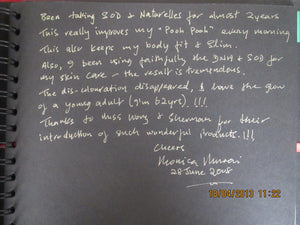 Been taking SOD & Naturelles for almost 2 years
This really improves my "Pooh Pooh" every morning
This also keeps my body fit & slim.
Also, I been using faithfully the DNH & SOD for
my skin care - the result is tremendous.
The dis-colouration disappeared, I have the glow
of a young adult (I'm 62yrs). !!!
Thanks to Miss Wong & Sherman for their
introduction of such wonderful products.!!!
Cheers
Monica
28 June 2008
18/04/2013 11:22